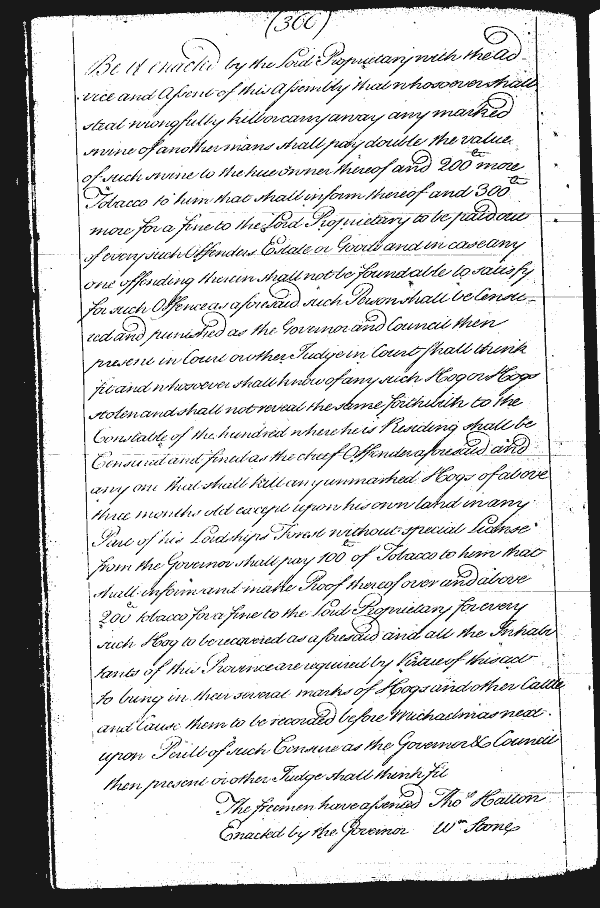 (366)
Be it enacted by the Lord Proprietary with the Ad-
vice and Assent of this Assembly that whosoever shall
steal wrongfully kill or carry away any marked
swine of another mans shall pay double the value
of such swine to the true owner thereof and 200 more
Tobacco to him that shall inform thereof and 300
more for a fine to the Lord Proprietary to be paid out
of every such Offenders Estate or Goods and in case any
one offending therein shall not be found able to satisfy
for such Offence as aforesaid such Person shall be Censu-
red and punished as the Governor and Council then
present in Court or other Judge in Court shall think
fit and whosoever shall know of any such Hog or Hogs
stolen and shall not reveal the same forthwith to the
Constable of the hundred where he is Residing shall be
Censured and fined as the chief Offender aforesaid and
any one that shall kill any unmarked Hogs of above
three months old except upon his own land in any
Part of his Lordships Forest without special License
from the Governor shall pay 100 of Tobacco to him that
shall inform and make Proof thereof over and above
200 tobacco for a fine to the Lord Proprietary for every
such Hog to be recovered as aforesaid and all the Inhabi
tants of this Province are required by Virtue of this act
to bring in their several marks of Hogs and other Cattle
and Cause them to be recorded before Michaelmas next
upon Perill of such Censure as the Governor & Council
then present or other Judge shall think fit
The freemen have assented Tho⁵ Hatton
Enacted by the Governor Wᵐ Stone